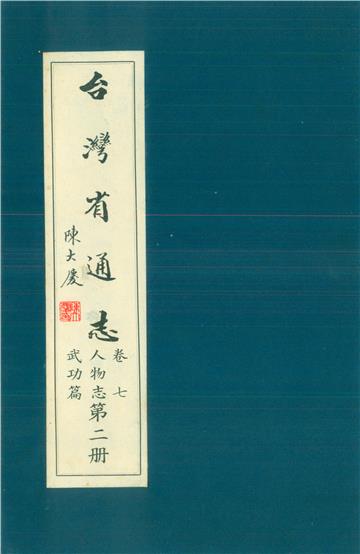 台灣省通志
陳大慶
卷七
人物志第二册
武功篇